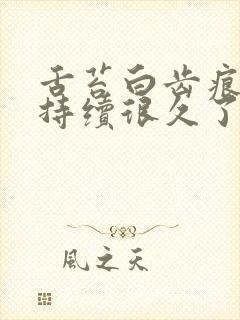 舌苔白齿痕
持续很久了
風之天